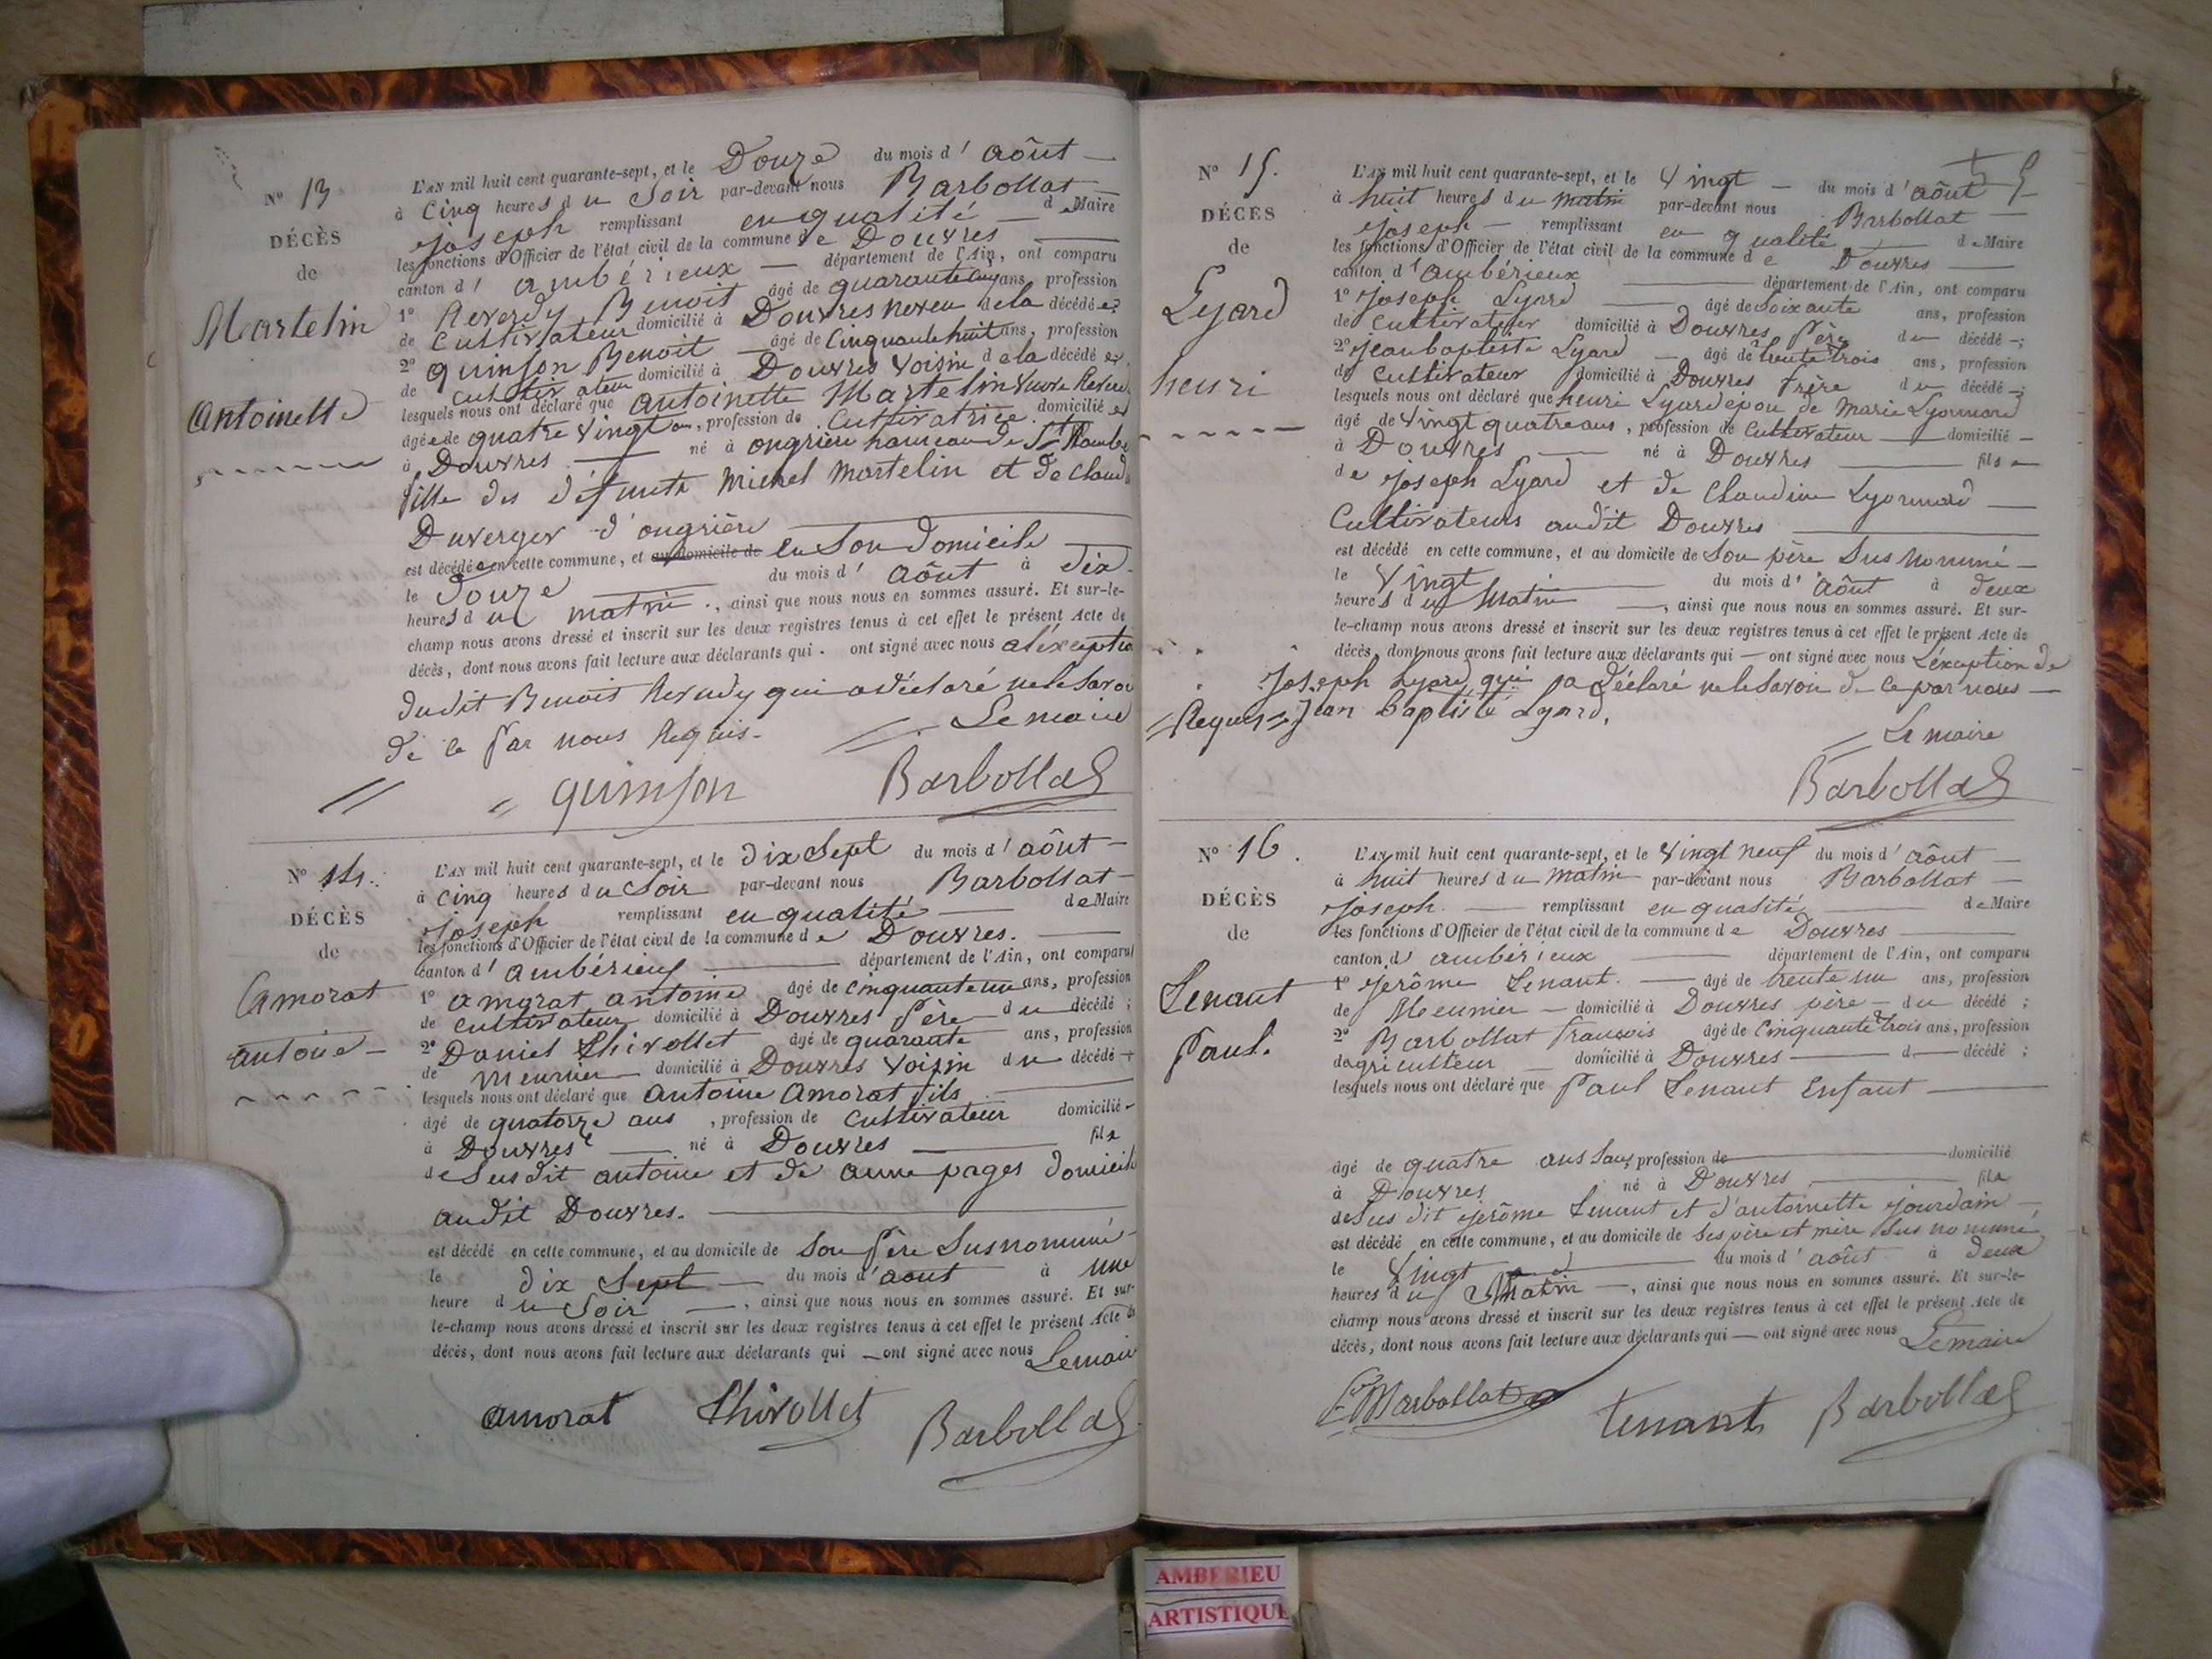 N° 13
DÉCÈS
de
Martelin
Antoinette
L'AN mil huit cent quarante-sept, et le Douze du mois d' Aôut
à Cinq heures du Soir par-devant nous Barbollat
joseph remplissant en qualité de Maire
les fonctions d'Officier de l'état civil de la commune de Douvres
canton d' ambérieux département de l'Ain, ont comparu
1° Reverdy Benoit âgé de quarante ans, profession
de Cultivateur domicilié à Douvres neveu de la décédée
2° quinson Benoit âgé de Cinquante huit ans, profession
de cultivateur domicilié à Douvres voisin de la décédée
lesquels nous ont déclaré que antoinette Martelin veuve
âgée de quatre vingt ans, profession de Cultivatrice domiciliée
à Douvres né à ongrière hameau de St
fille des défunts Michel Martelin et de
Duverger d'ongrière
est décédée en cette commune, et au domicile de en Son domicile
le Douze du mois d' Aôut à dix
heures du matin, ainsi que nous nous en sommes assuré. Et sur-le-
champ nous avons dressé et inscrit sur les deux registres tenus à cet effet le présent Acte de
décès, dont nous avons fait lecture aux déclarants qui ont signé avec nous
dudit Benoit Reverdy qui a déclaré ne le Savoir
de ce par nous Requis. Le maire
quinson Barbollat
N° 14.
DÉCÈS
de
Amorat
antoine
L'AN mil huit cent quarante-sept, et le dix Sept du mois d' aôut
à Cinq heures du Soir par-devant nous Barbollat
joseph remplissant en qualité de Maire
les fonctions d'Officier de l'état civil de la commune de Douvres.
canton d' ambérieux département de l'Ain, ont comparu
1° amorat antoine âgé de cinquante un ans, profession
de cultivateur domicilié à Douvres Père du décédé ;
2° Daniel Thivollet âgé de quarante ans, profession
de meunier domicilié à Douvres voisin du décédé
lesquels nous ont déclaré que Antoine Amorat fils
âgé de quatorze ans, profession de cultivateur domicilié
à Douvres né à Douvres fils
de Susdit antoine et de anne pages
audit Douvres.
est décédé en cette commune, et au domicile de Son Père Susnommé
le dix Sept du mois d' aout à une
heure du Soir, ainsi que nous nous en sommes assuré. Et sur-
le-champ nous avons dressé et inscrit sur les deux registres tenus à cet effet le présent Acte de
décès, dont nous avons fait lecture aux déclarants qui ont signé avec nous Le maire
amorat Thivollet Barbollat
N° 15.
DÉCÈS
de
Lyard
henri
L'AN mil huit cent quarante-sept, et le Vingt du mois d' Aôut
à huit heures du matin par-devant nous Barbollat
joseph remplissant en qualité de Maire
les fonctions d'Officier de l'état civil de la commune de Douvres
canton d' ambérieux département de l'Ain, ont comparu
1° joseph Lyard âgé de Soixante ans, profession
de cultivateur domicilié à Douvres Père du décédé ;
2° jean baptiste Lyard âgé de trente trois ans, profession
de cultivateur domicilié à Douvres frère du décédé ;
lesquels nous ont déclaré que henri Lyard épou de Marie Lyonnard
âgé de Vingt quatre ans, profession de Cultivateur domicilié
à Douvres né à Douvres fils
de joseph Lyard et de Claudine Lyonnard
Cultivateurs audit Douvres
est décédé en cette commune, et au domicile de Son père Sus nommé
le Vingt du mois d' Aôut à deux
heures du Matin, ainsi que nous nous en sommes assuré. Et sur-
le-champ nous avons dressé et inscrit sur les deux registres tenus à cet effet le présent Acte de
décès, dont nous avons fait lecture aux déclarants qui ont signé avec nous L'éxception de
Joseph Lyard qui a déclaré ne le Savoir de ce par nous
Requis Jean Baptiste Lyard,
Le maire
Barbollat
N° 16.
DÉCÈS
de
Tenant
Paul.
L'AN mil huit cent quarante-sept, et le Vingt neuf du mois d' aôut
à huit heures du matin par-devant nous Barbollat
joseph remplissant en qualité de Maire
les fonctions d'Officier de l'état civil de la commune de Douvres
canton d' ambérieux département de l'Ain, ont comparu
1° jérôme Tenant. âgé de trente un ans, profession
de Meunier domicilié à Douvres père du décédé ;
2° Barbollat francois âgé de Cinquante trois ans, profession
d'agriculteur domicilié à Douvres d décédé ;
lesquels nous ont déclaré que Paul Tenant Enfant
âgé de quatre ans Sans profession de domicilié
à Douvres né à Douvres fils
de Sus dit jérôme Tenant et d'antoinette jourdain
est décédé en cette commune, et au domicile de Ses père et mère Sus nommé
le Vingt du mois d' août à deux
heures du Matin, ainsi que nous nous en sommes assuré. Et sur-le-
champ nous avons dressé et inscrit sur les deux registres tenus à cet effet le présent Acte de
décès, dont nous avons fait lecture aux déclarants qui ont signé avec nous Le maire
Barbollat tenant Barbollat
AMBERIEU
ARTISTIQUE